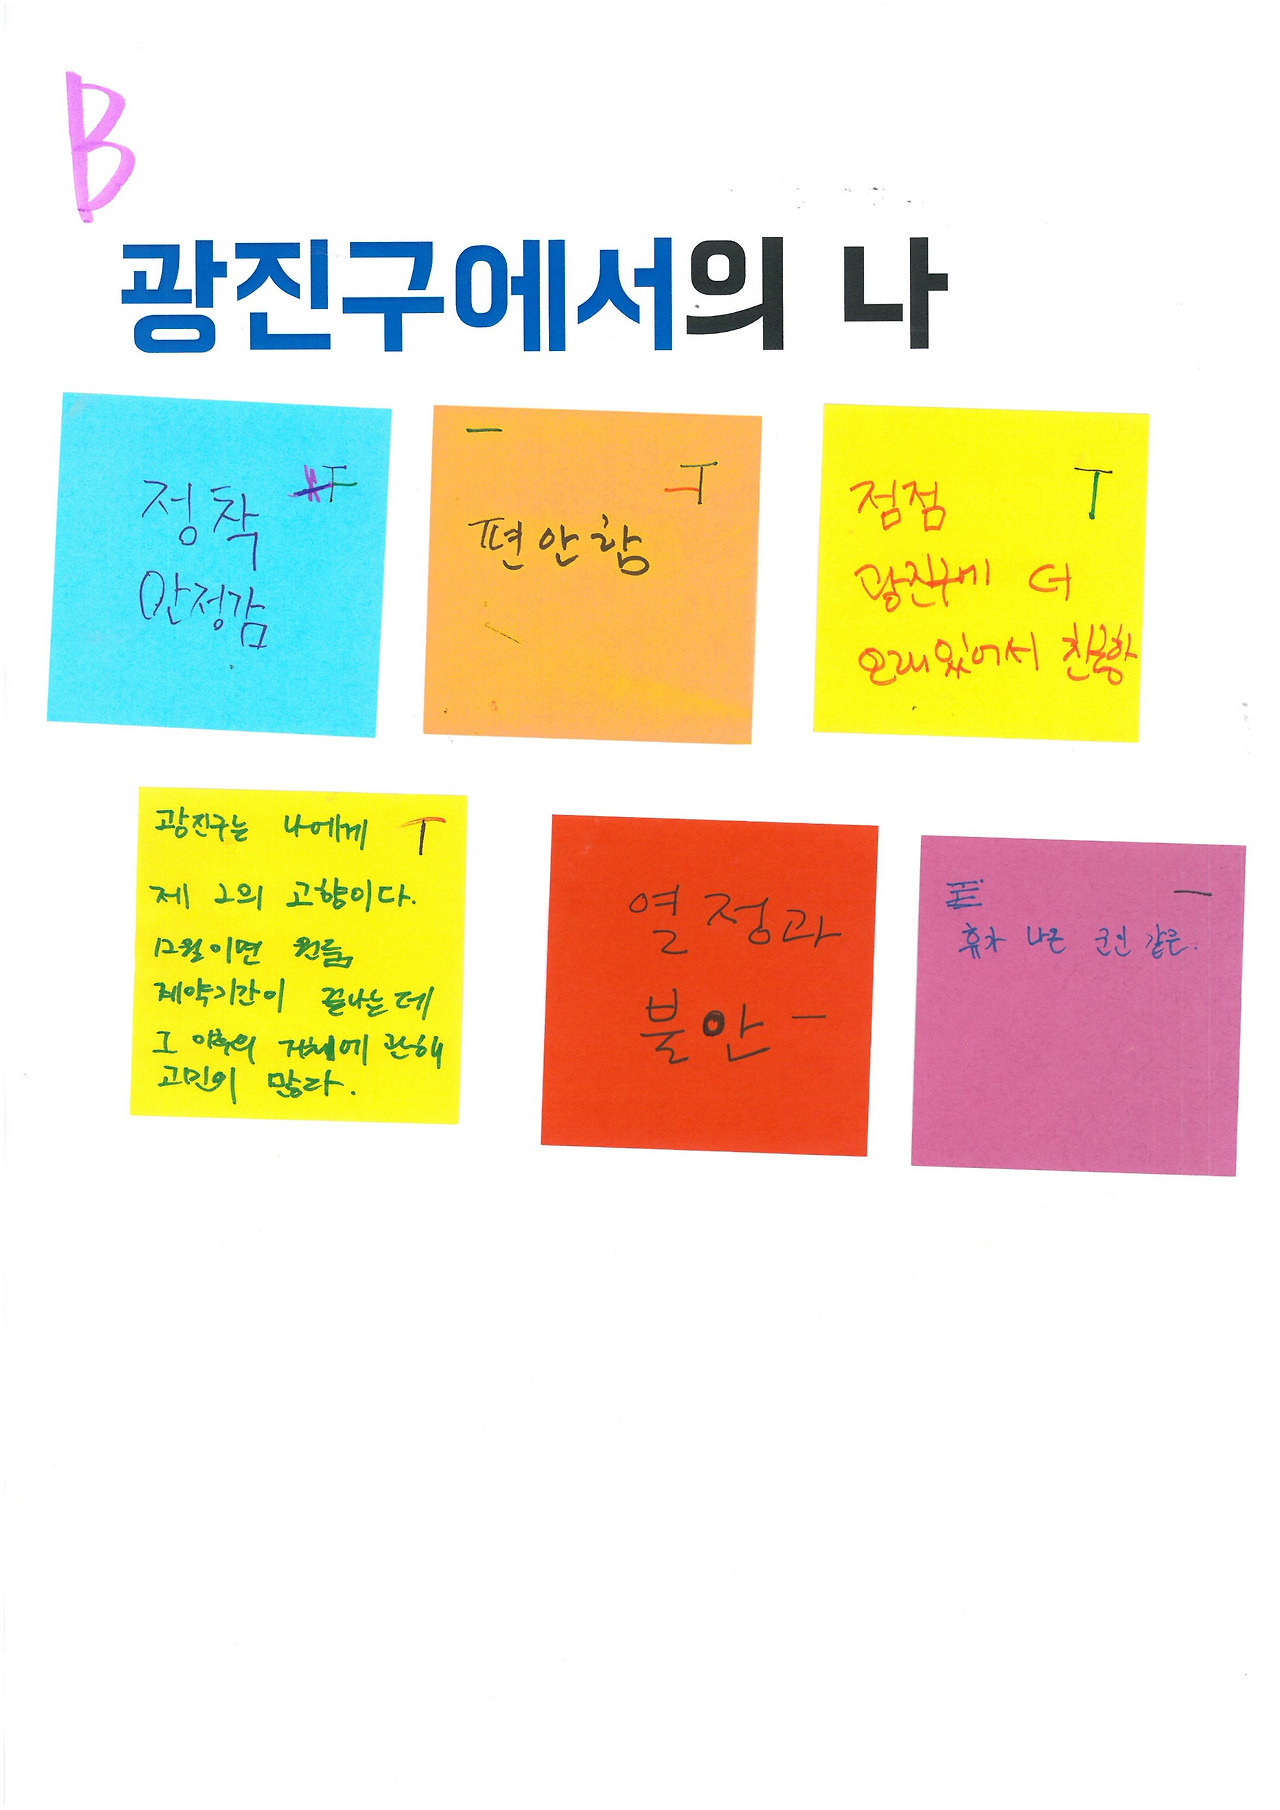 B
광진구에서의 나
정착
안정감
T
편안함
T
점점
광진구에 더
오래있어서 친근함
T
광진구는 나에게
제 2의 고향이다.
12월이면 원룸
계약기간이 끝나는데
그 이후의 거처에 관해
고민이 많다.
열정과
불안 -
휴가 나온 군인 같은.